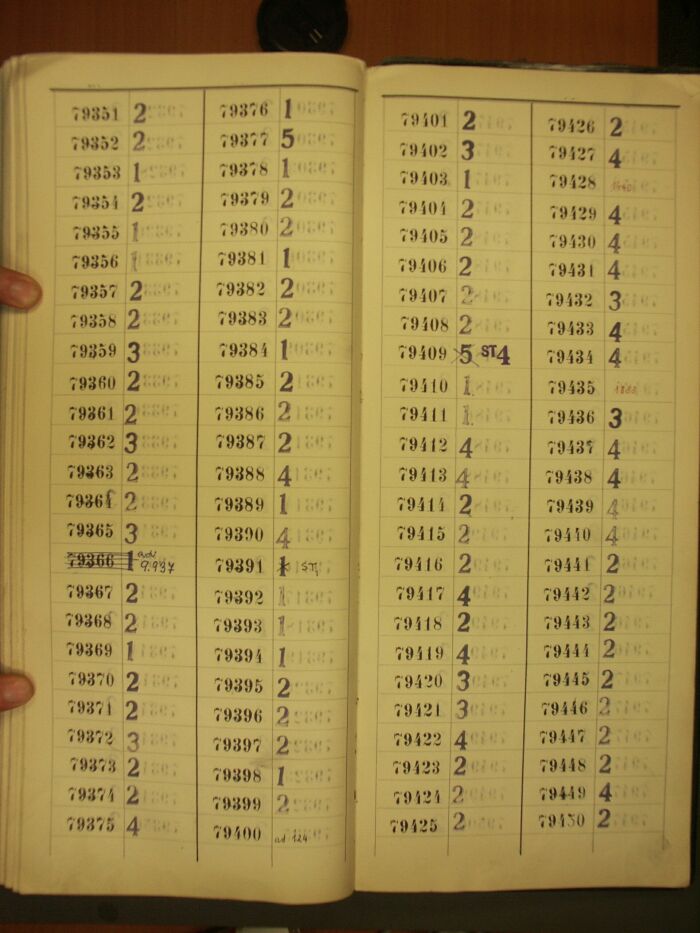 79351 2
79352 2
79353 1
79354 2
79355 1
79356 1
79357 2
79358 2
79359 3
79360 2
79361 2
79362 3
79363 2
79364 2
79365 3
79366 1 ad 9.937
79367 2
79368 2
79369 1
79370 2
79371 2
79372 3
79373 2
79374 2
79375 4
79376 1
79377 5
79378 1
79379 2
79380 2
79381 1
79382 2
79383 2
79384 1
79385 2
79386 2
79387 2
79388 4
79389 1
79390 4
79391 1 ST,
79392 1
79393 1
79394 1
79395 2
79396 2
79397 2
79398 1
79399 2
79400 ad 124
79401 2
79402 3
79403 1
79404 2
79405 2
79406 2
79407 2
79408 2
79409 5 ST4
79410 1
79411 1
79412 4
79413 4
79414 2
79415 2
79416 2
79417 4
79418 2
79419 4
79420 3
79421 3
79422 4
79423 2
79424 2
79425 2
79426 2
79427 4
79428
79429 4
79430 4
79431 4
79432 3
79433 4
79434 4
79435
79436 3
79437 4
79438 4
79439 4
79440 4
79441 2
79442 2
79443 2
79444 2
79445 2
79446 2
79447 2
79448 2
79449 4
79450 2